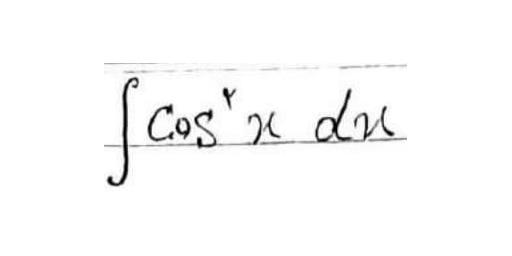 ∫ cos² x dx